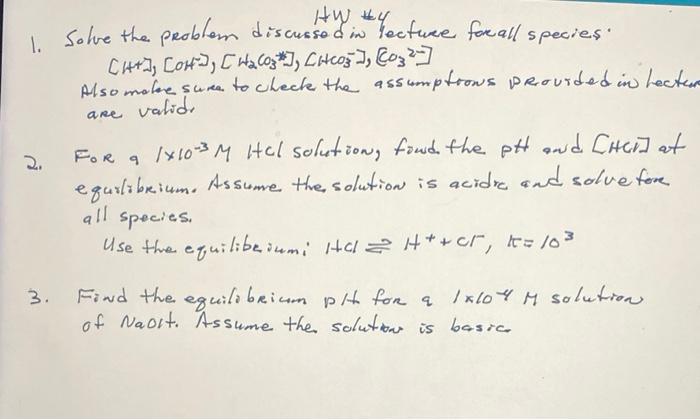 HW #4
1. Solve the problem discussed in lecture for all species:
[H+], [OH-], [H2CO3*], [HCO3-], [CO3 2-]
Also make sure to check the assumptions provided in lecture
are valid.
2. For a 1x10^-3 M HCl solution, find the pH and [HCl] at
equilibrium. Assume the solution is acidic and solve for
all species.
Use the equilibrium: HCl ⇌ H+ + Cl-, K=10^3
3. Find the equilibrium pH for a 1x10^-4 M solution
of NaOH. Assume the solution is basic